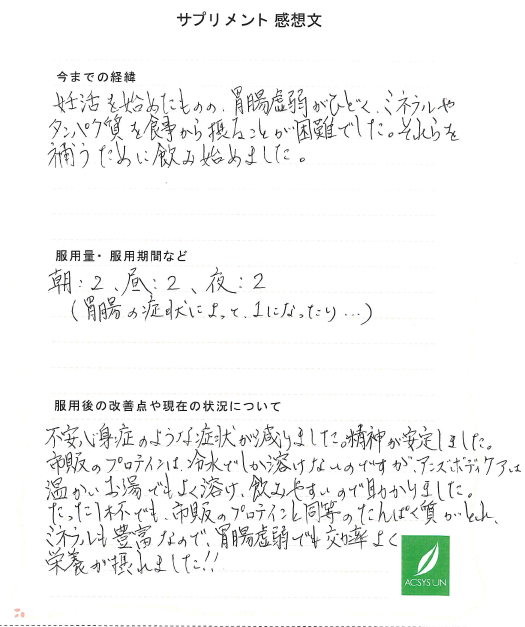 サプリメント 感想文
今までの経緯
妊活を始めたものの、胃腸虚弱がひどく、ミネラルや
タンパク質を食事から摂ることが困難でした。それらを
補うために飲み始めました。
服用量・服用期間など
朝：2、昼：2、夜：2
（胃腸の症状によって、1になったり…）
服用後の改善点や現在の状況について
不安心身症のような症状が減りました。精神が安定しました。
市販のプロテインは、冷水でしか溶けないのですが、アンズボディケアは
温かいお湯でもよく溶け、飲みやすいので助かりました。
たった1杯でも、市販のプロテインと同等のたんぱく質がとれ、
ミネラルも豊富なので、胃腸虚弱でも効率よく
栄養が摂れました!!
ACSYSUN